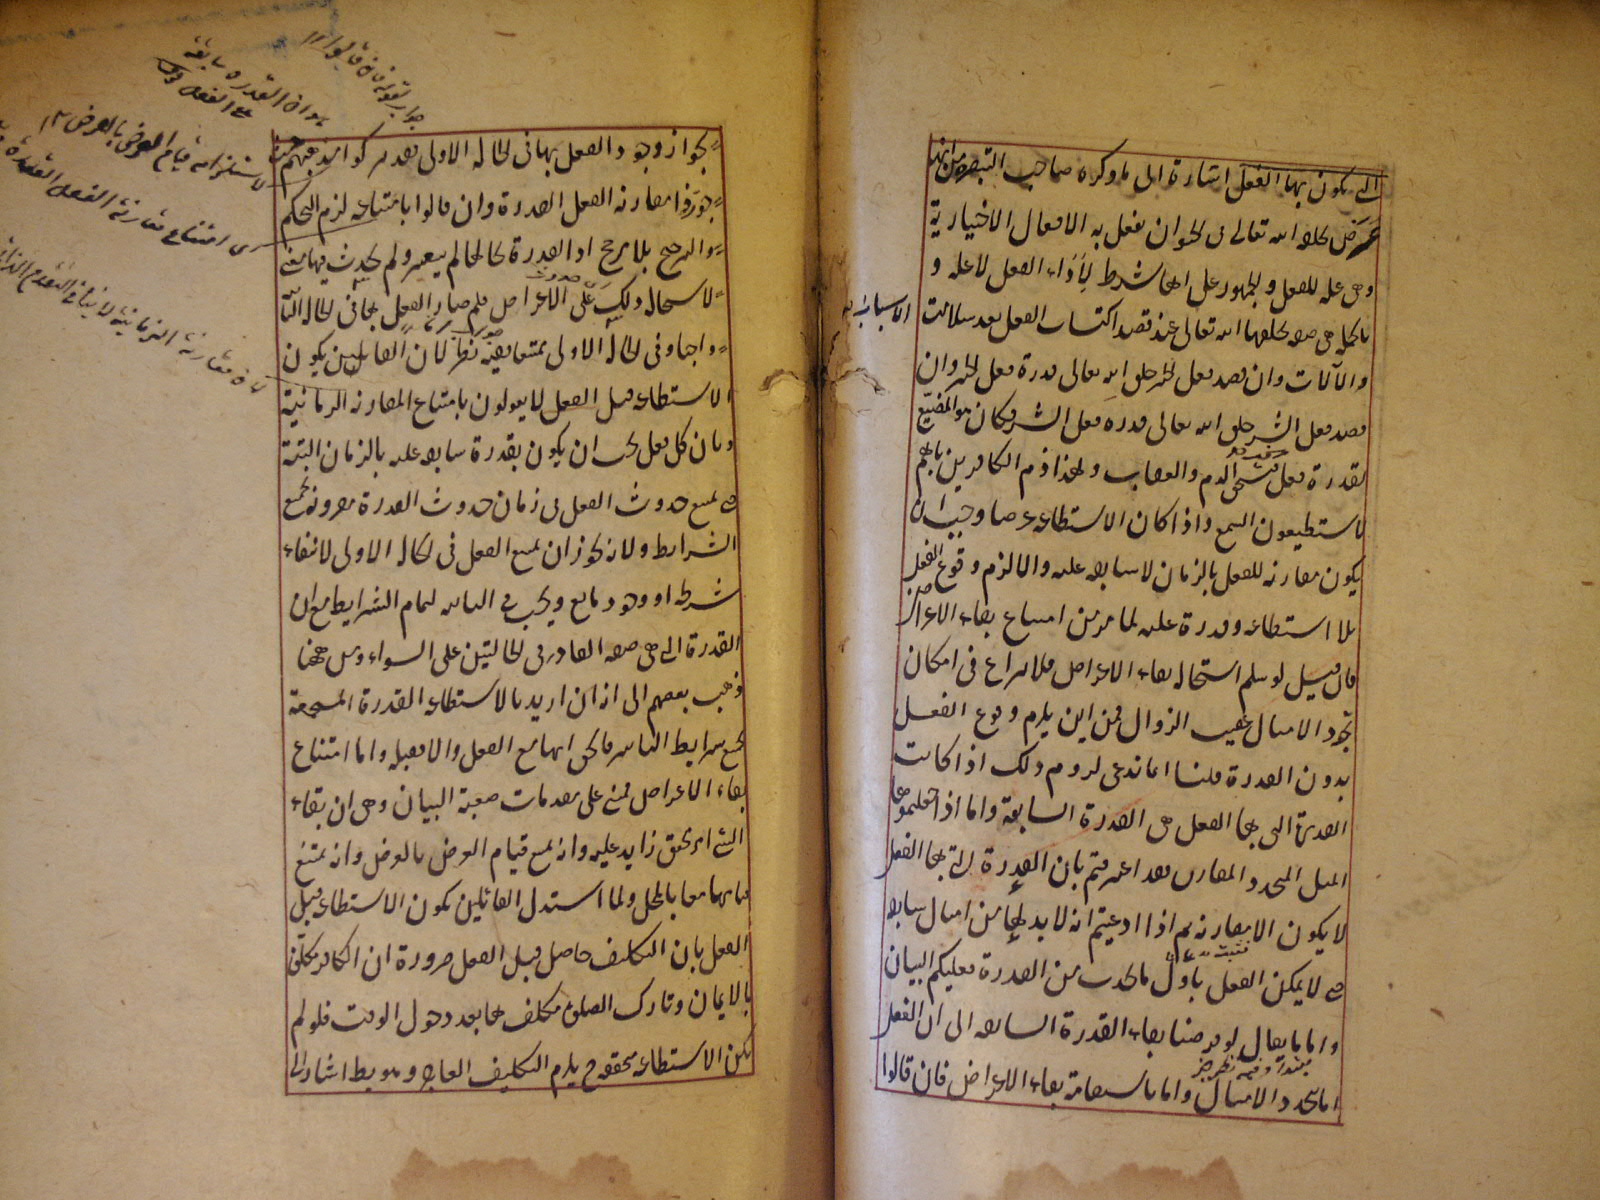 التي يكون بها الفعل اشارة الى ما ذكره صاحب التبصرة من انها
عرض يخلقه الله تعالى في الحيوان يفعل به الافعال الاختيارية
وهي علة للفعل والجمهور على انها شرط لاداء الفعل لا علة و
بالجملة هي صفة يخلقها الله تعالى عند قصد اكتساب الفعل بعد سلامة
الاسباب
والآلات وان قصد فعل الخير خلق الله تعالى قدرة فعل الخير وان
قصد فعل الشر خلق الله تعالى قدرة فعل الشر فكان هو المضيع
لقدرة فعل الخير فيستحق الذم والعقاب ولهذا ذم الكافرين بانهم
لا يستطيعون السمع واذا كان الاستطاعة عرضا وجب ان
يكون مقارنة للفعل بالزمان لا سابقة عليه والا لزم وقوع الفعل
بلا استطاعة وقدرة عليه لما مر من امتناع بقاء الاعراض
فان قيل لو سلم استحالة بقاء الاعراض فلا نزاع في امكان
تجدد الامثال عقيب الزوال فمن اين يلزم وقوع الفعل
بدون القدرة قلنا انما ندعى لزوم ذلك اذا كانت
القدرة التي بها الفعل هي القدرة السابقة واما اذا جعلتموها
المثل المتجدد المقارن فقد اعترفتم بان القدرة التي بها الفعل
لا يكون الا مقارنة ثم اذا ادعيتم انه لا بد لها من امثال سابقة
حتى لا يمكن الفعل باول ما يحدث من القدرة فعليكم البيان
واما ما يقال لو فرضنا بقاء القدرة السابقة الى ان الفعل
اما بتجدد الامثال واما باستقامة بقاء الاعراض فان قالوا
بجواز وجود الفعل بها في الحالة الاولى فقد تركوا مذهبهم حيث
جوزوا مقارنة الفعل القدرة وان قالوا بامتناعه لزم التحكم
والترجيح بلا مرجح اذ القدرة بحالها لم يتغير ولم يحدث فيها معنى
لاستحالة ذلك على الاعراض فلم صار الفعل بها في الحالة الثانية
واجبا وفي الحالة الاولى ممتنعا ففيه نظر لان القائلين بكون
الاستطاعة قبل الفعل لا يقولون بامتناع المقارنة الزمانية
وبان كل فعل يجب ان يكون بقدرة سابقة عليه بالزمان البتة
حتى يمتنع حدوث الفعل في زمان حدوث القدرة مقرونة بجميع
الشرايط ولانه يجوز ان يمتنع الفعل في الحالة الاولى لانتفاء
شرط او وجود مانع ويجب في الثانية لتمام الشرايط مع ان
القدرة التي هي صفة القادر في الحالتين على السواء ومن ههنا
ذهب بعضهم الى انه ان اريد بالاستطاعة القدرة المستجمعة
بجميع شرايط التاثير فالحق انها مع الفعل والا فقبله واما امتناع
بقاء الاعراض فمبني على مقدمات صعبة البيان وهي ان بقاء
الشئ امر محقق زايد عليه وانه يمتنع قيام العرض بالعرض وانه يمتنع
قيامهما معا بالمحل ولما استدل القائلين بكون الاستطاعة قبل
الفعل بان التكليف حاصل قبل الفعل ضرورة ان الكافر مكلف
بالايمان وتارك الصلوة مكلف بها بعد دخول الوقت فلو لم
يكن الاستطاعة متحققة ح يلزم التكليف العاجز وهو بط اشار الى
لاستلزامه قيام العرض بالعرض ١٢